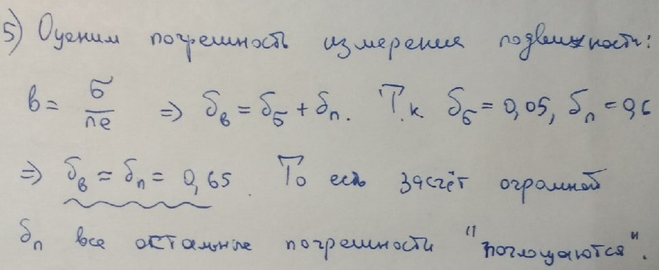 5) Оценим погрешность измерения подвижности:
b = σ/ne ⇒ δ_b = δ_σ + δ_n. Т.к. δ_σ = 0,05, δ_n = 0,6
⇒ δ_b ≈ δ_n = 0,65. То есь засчёт огромной
δ_n все остальные погрешности "поглощаются".